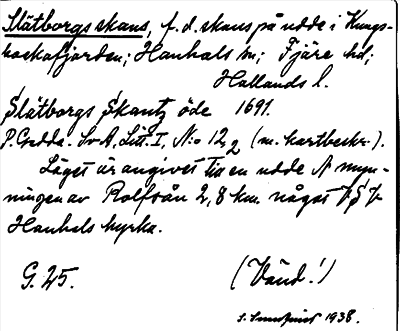 Slätborgs skans, f.d. skans på udde i Kungs-
backafjorden; Hanhals sn; Fjäre hd;
Hallands l.
Slätborgs Skantz öde 1691.
P. Gedda. Sv A, Litt. I, N:o 12 2 (m. kartbeskr.).
Läget är angivet till en udde N myn-
ningen av Rolfsån 2,8 km. något V
Hanhals kyrka.
G. 25. (Vänd!)
1938.